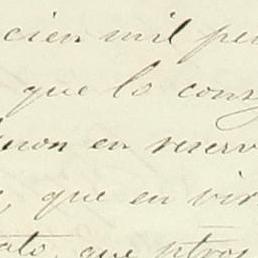 cien mil pe
que lo cons
ieron en reserv
, que en vir
ato, que otros